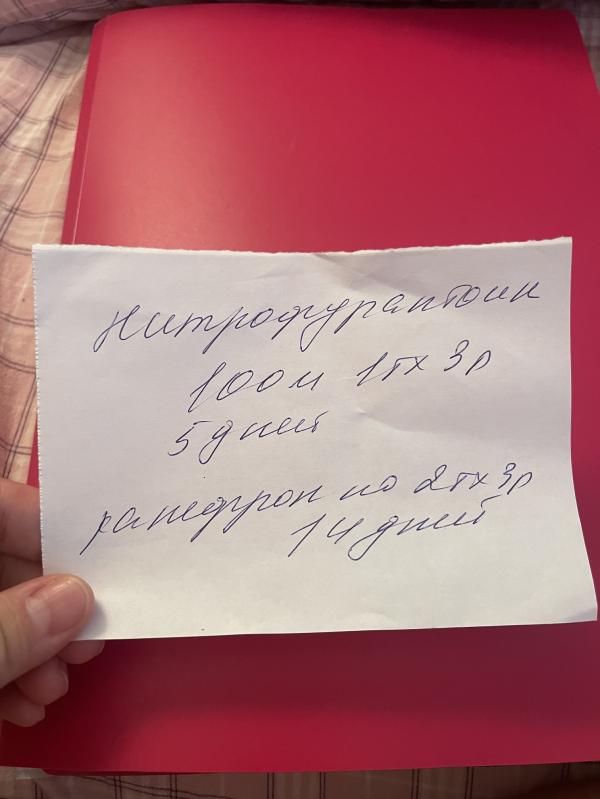 Нитрофурантоин
100м 1тх3р
5 дней
канефрон по 2тх3р
14 дней